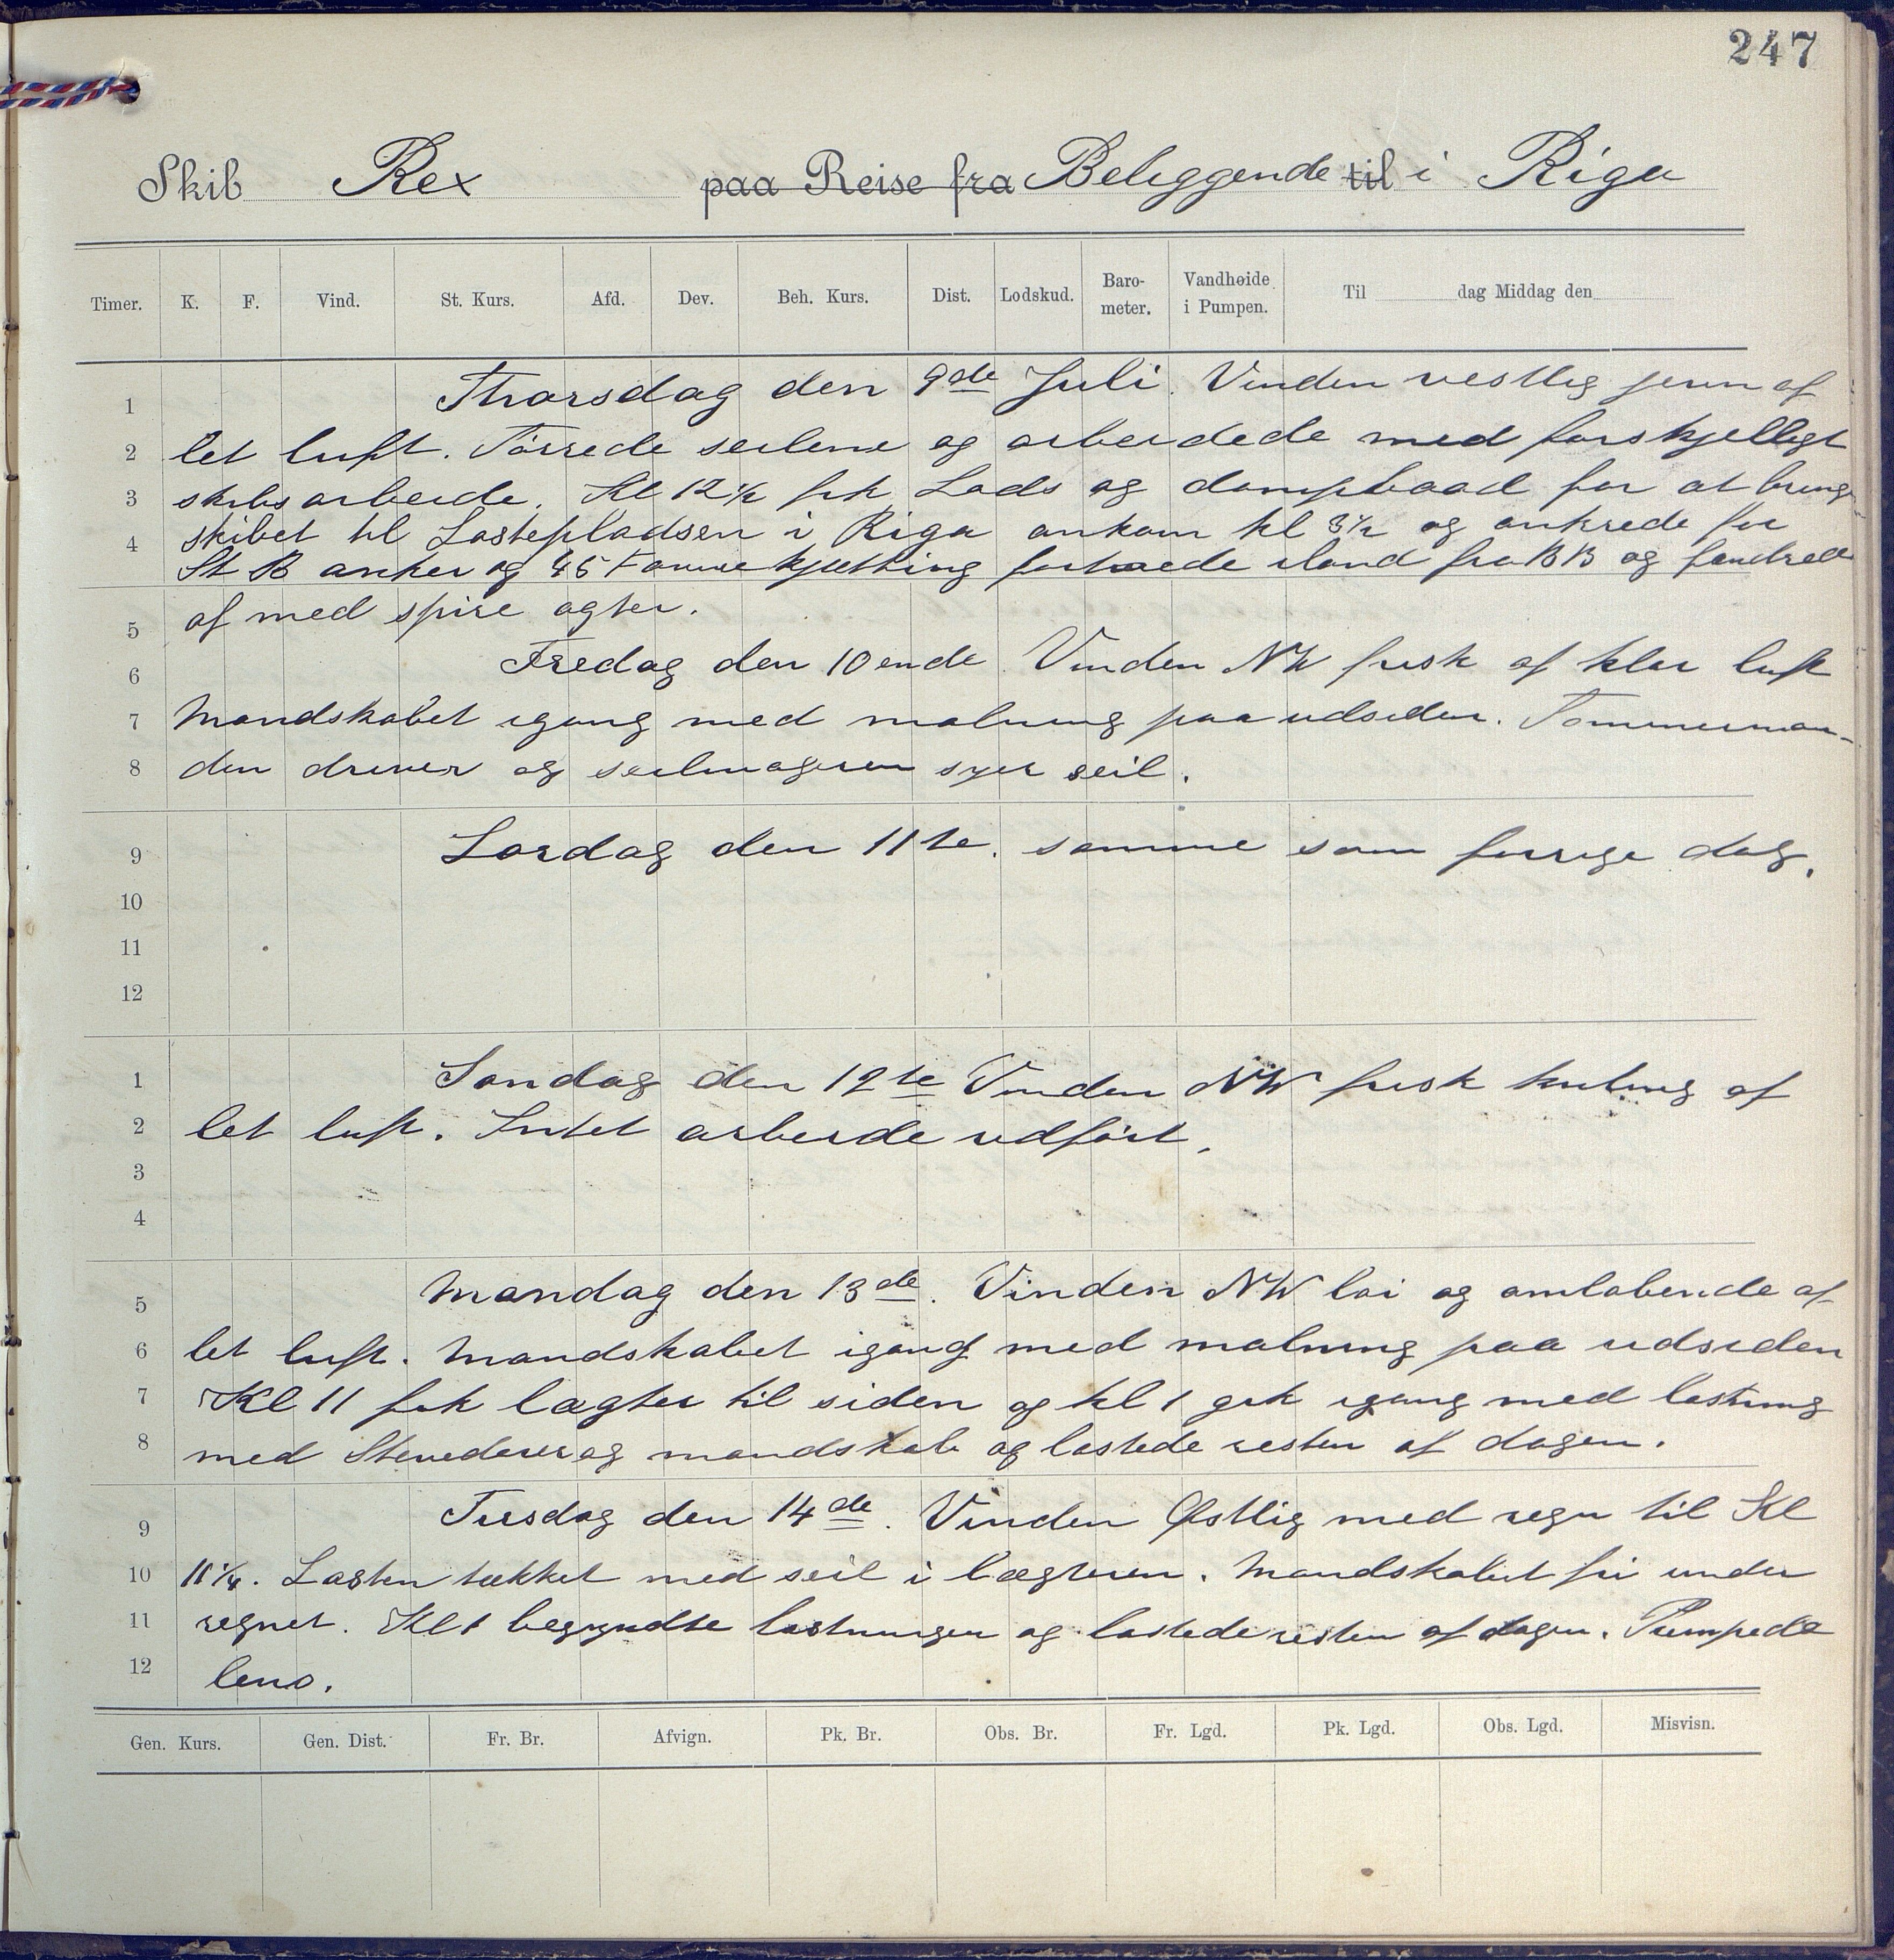 247
Skib Rex paa Reise fra Beliggende til i Riga
Timer. K. F. Vind. St. Kurs. Afd. Dev. Beh. Kurs. Dist. Lodskud. Baro-meter. Vandhøide i Pumpen. Til dag Middag den
1 Thorsdag den 9de Juli. Vinden vestlig jevn af
2 let luft. Tørrede seilene og arbeidede med forskjelligt
3 skibsarbeide. Kl 12½ fik Lods og dampbaad for at bringe
4 skibet til Lastepladsen i Riga ankom kl 3½ og ankrede for
St B anker og 45 Favne kjætting fortøiede iland fra BB og fendrede
5 af med spire agter.
6 Fredag den 10ende Vinden NW frisk af klar luft
7 Mandskabet igang med malning paa udsiden. Tømmerman-
8 den driver og seilmageren syer seil.
9 Lørdag den 11te. samme som forrige dag.
10
11
12
1 Søndag den 12te Vinden NW frisk kuling af
2 let luft. Intet arbeide udført.
3
4
5 Mandag den 13de. Vinden NW løi og omløbende af
6 let luft. Mandskabet igang med malning paa udsiden
7 Kl 11 fik lægter til siden og kl 1 gik igang med lastning
8 med Stevedorer og mandskab og lastede resten af dagen.
9 Tirsdag den 14de. Vinden Østlig med regn til Kl
10 11¼. Lasten tækket med seil i lægteren. Mandskabet fri under
11 regnet. Kl 1 begyndte lastningen og lastede resten af dagen. Pumpede
12 lens.
Gen. Kurs. Gen. Dist. Fr. Br. Afvign. Pk. Br. Obs. Br. Fr. Lgd. Pk. Lgd. Obs. Lgd. Misvisn.